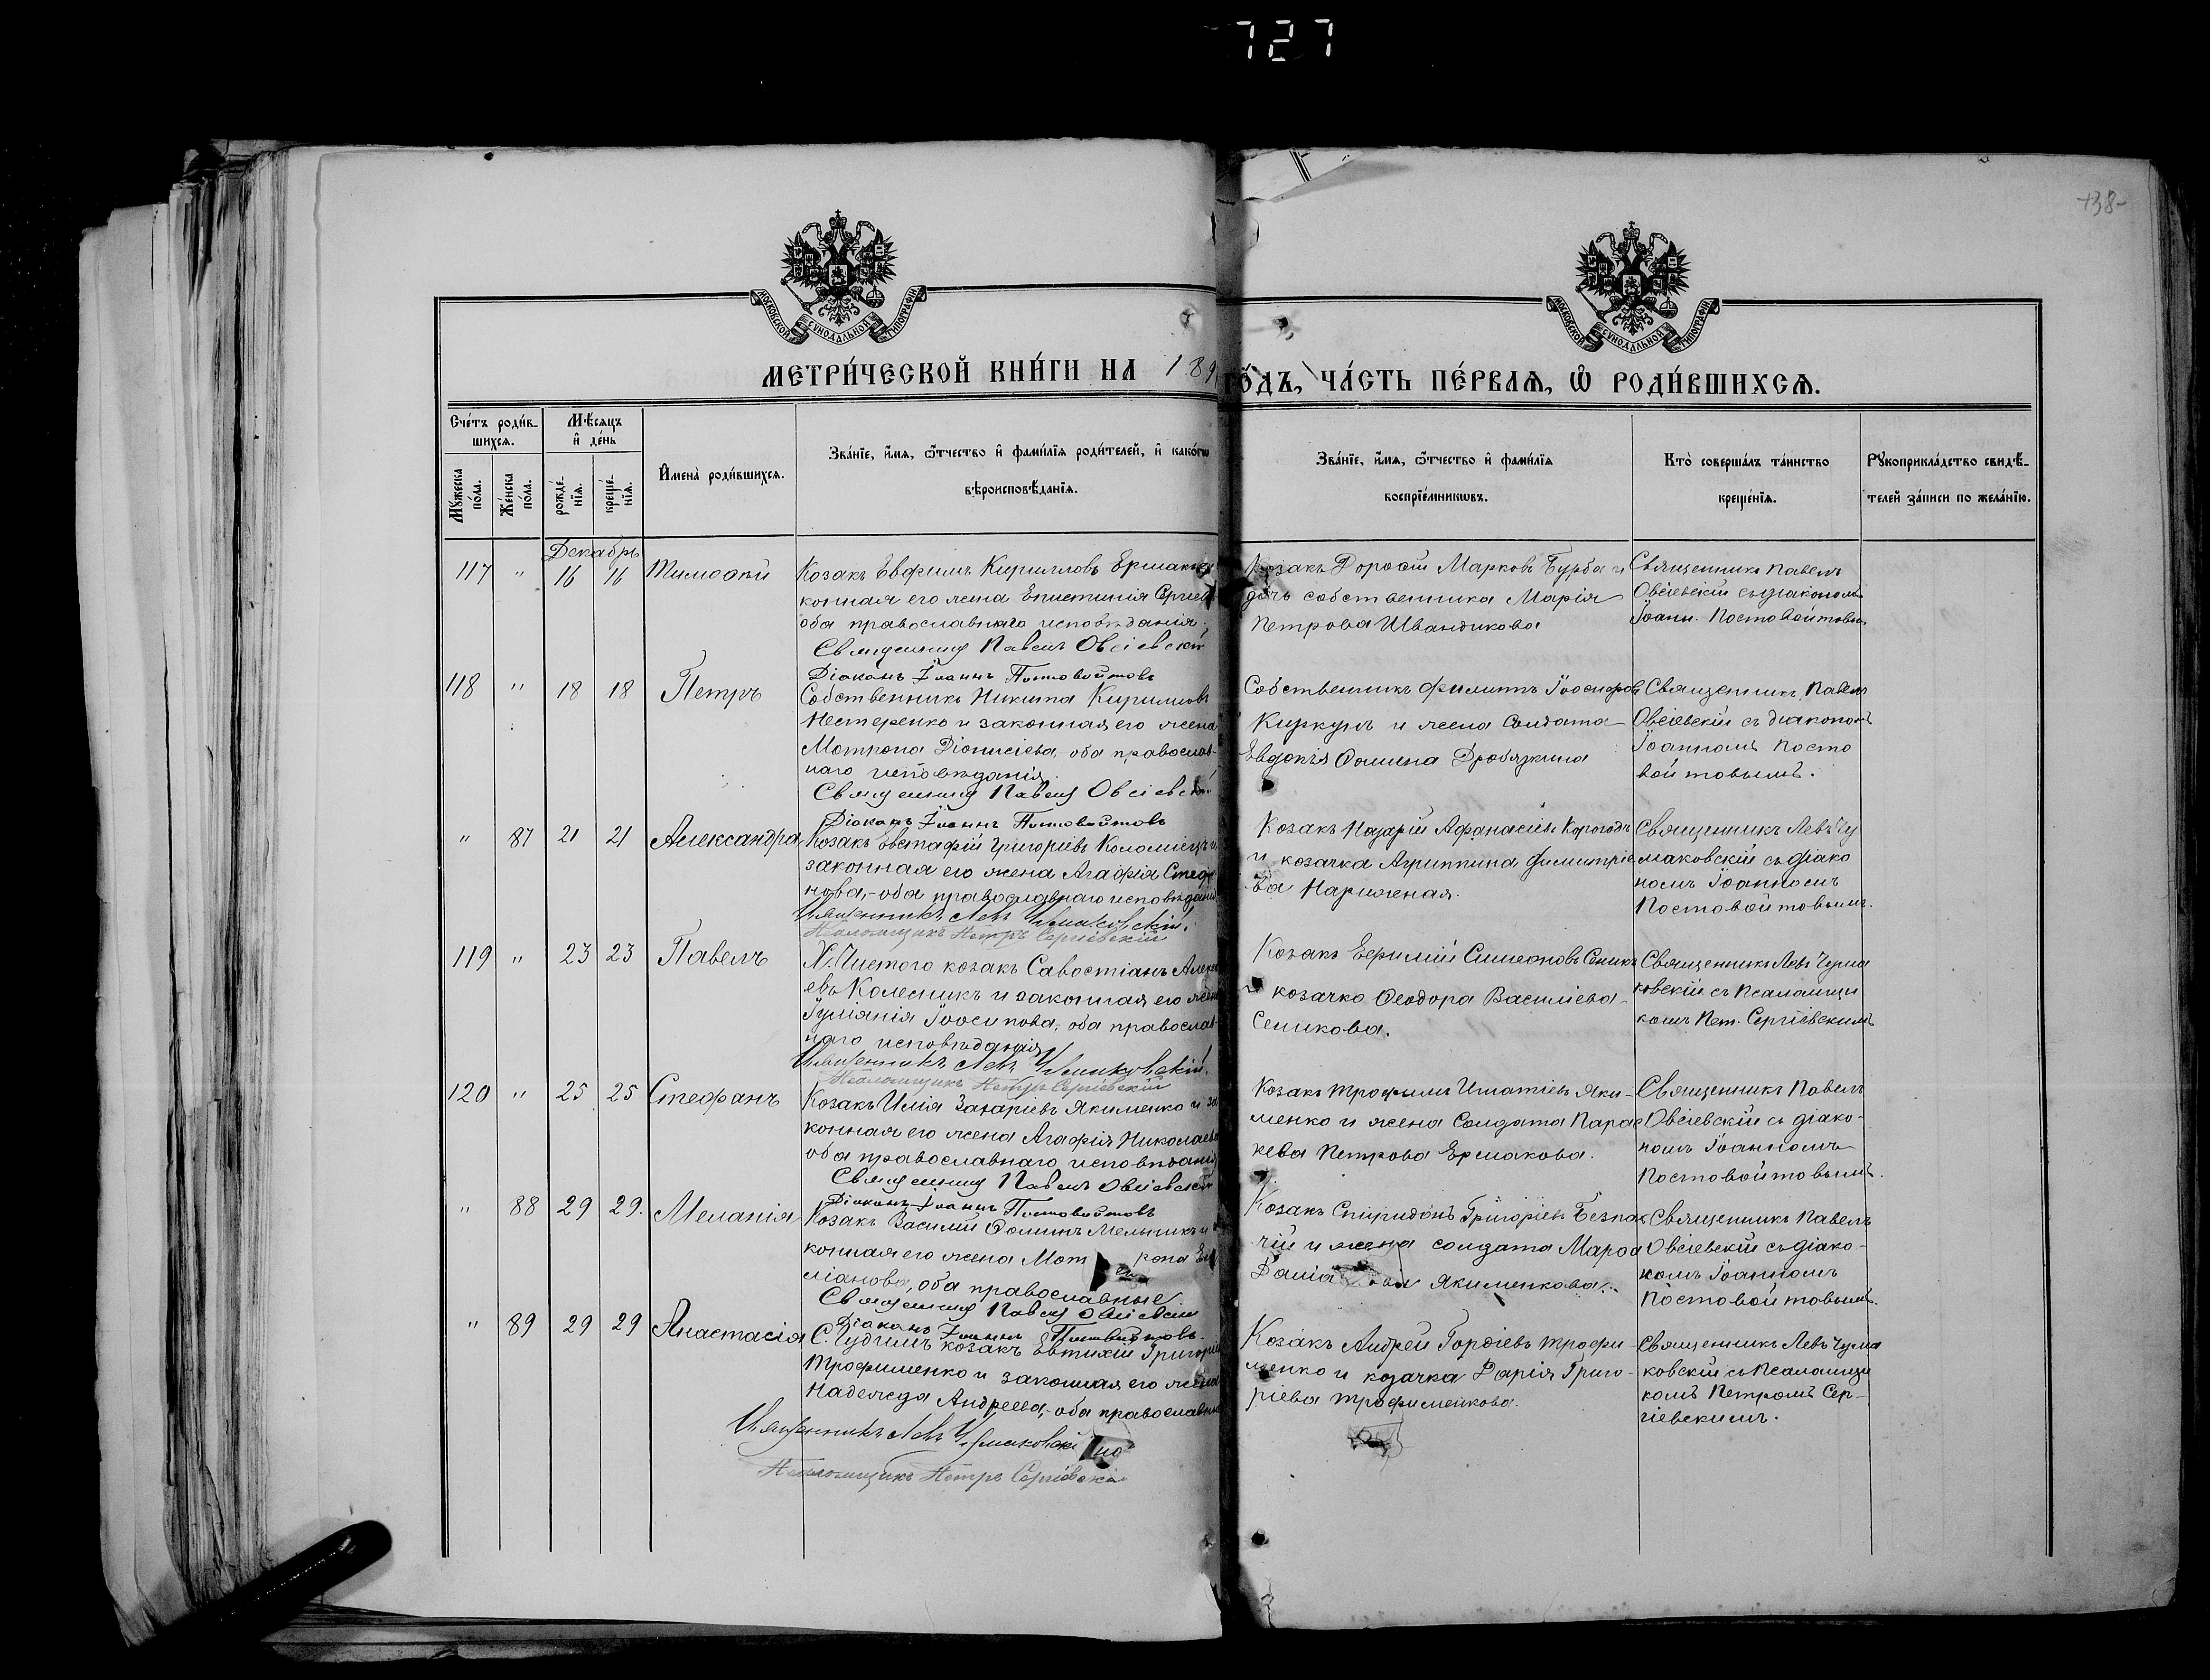 727
138
МОСКОВСКОЙ СУНОДАЛЬНОЙ ТИПОГРАФІИ
МОСКОВСКОЙ СУНОДАЛЬНОЙ ТИПОГРАФІИ
МЕТРИ́ЧЕСКОЙ КНИ́ГИ НА 189
ГО́ДЪ, ЧА́СТЬ ПЕ́РВАЯ, Ѿ РОДИ́ВШИХСЯ.
Сче́тъ роди́в-
шихся.
Мꙋжеска по́ла.
Же́нска по́ла.
Мѣ́сяцъ
и҆ де́нь
рожде́-
нїя.
креще́-
нїя.
И҆мена̀ роди́вшихся.
Зва́нїе, и҆́мя, ѻ҆́тчество и҆ фами́лїя роди́телей, и҆ како́гѡ
вѣроисповѣ́данїя.
Зва́нїе, и҆́мя, ѻ҆́тчество и҆ фами́лїя
воспрїе́мникѡвъ.
Кто̀ соверша́лъ та́инство
креще́нїя.
Рꙋкоприкла́дство свидѣ́-
телей за́писи по жела́нїю.
Декабрь
117 " 16 16 Тимоѳей
Козакъ Евфимъ Кирилловъ Ермак
конная его жена Епистимія Серге
оба православнаго исповѣданія.
Священникъ Павелъ Овсіевскій
Діаконъ Іоаннъ Постовойтовъ
Козакъ Дороѳей Марковъ Бурба и
дочь собственника Марія
Петрова Иваненкова
Священникъ Павелъ
Овсіевскій съ діакономъ
Іоанн. Постовойтовымъ
118 " 18 18 Петръ
Собственникъ Никита Кирилловъ
Нестеренко и законная его жена
Мотрона Діонисіева, оба православ-
наго исповѣданія.
Священникъ Павелъ Овсіевскій
Діаконъ Іоаннъ Постовойтовъ
Собственникъ Филиппъ Іосифовъ
Киркунъ и жена солдата
Евдокія Ѳомина Дробязкина
Священникъ Павелъ
Овсіевскій съ діакономъ
Іоанномъ Посто
войтовымъ.
" 87 21 21 Александра
Козакъ Евстафій Григоріевъ Коломіецъ и
законная его жена Агафія Стефа
нова, - оба православнаго исповѣданія
Священникъ Левъ Чумаковскій.
Псаломщикъ Петръ Сергіевскій
Козакъ Назарій Афанасіевъ Корогодъ
и козачка Агриппина Димитріе
ва Нариженая.
Священникъ Левъ Чу
маковскій съ діако
номъ Іоанномъ
Постовойтовымъ.
119 " 23 23 Павелъ
Х. Пистого козакъ Савостіанъ Алексе
евъ Колесникъ и законная его жена
Іуліанія Іосипова, оба православ-
наго исповѣданія
Священникъ Левъ Чумаковскій.
Псаломщикъ Петръ Сергіевскій
Козакъ Ефимій Симеоновъ Сеникъ
и козачка Ѳеодора Василіева
Сеникова.
Священникъ Левъ Чума
ковскій съ Псаломщи
комъ Пет. Сергіевскимъ
120 " 25 25 Стефанъ
Козакъ Илія Захаріевъ Якименко и за
конная его жена Агафія Николаева
оба православнаго исповѣданія
Священникъ Павелъ Овсіевскій
Діаконъ Іоаннъ Постовойтовъ
Козакъ Трофимъ Игнатіевъ Яки-
менко и жена солдата Парас
кева Петрова Ермакова.
Священникъ Павелъ
Овсіевскій съ діако-
номъ Іоанномъ
Постовойтовымъ.
" 88 29 29. Меланія
Козакъ Василій Ѳоминъ Мельникъ и
конная его жена Мот рона Ем
ліанова, оба православные.
Священникъ Павелъ Овсіевскій
Діаконъ Іоаннъ Постовойтовъ.
Козакъ Спиридонъ Григоріевъ Безпал
чій и жена солдата Марѳа
Якименкова.
Священникъ Павелъ
Овсіевскій съ діако-
номъ Іоанномъ
Постовойтовымъ.
" 89 29 29 Анастасія
С. Чудгинъ козакъ Евтихій Григорі
Трофименко и законная его жена
Надежда Андреева, - оба православные
Священникъ Левъ Чумаковскій
Псаломщикъ Петръ Сергіевскій
Козакъ Андрей Гордіевъ Трофи-
менко и козачка Дарія Григо-
ріева Трофименкова.
Священникъ Левъ Чума
ковскій съ Псаломщи
комъ Петромъ Сер-
гіевскимъ.